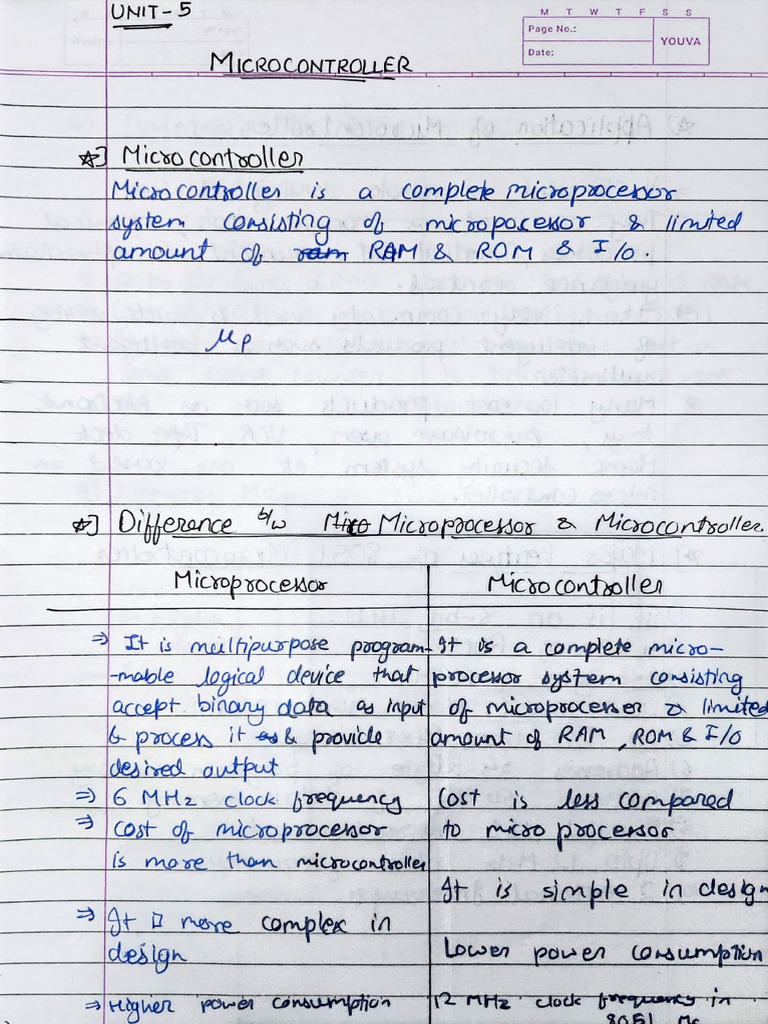 UNIT-5
M T W T F S S
Page No.:
Date:
YOUVA
MICROCONTROLLER
Microcontroller
Microcontroller is a complete microprocessor
system consisting of micropocessor & limited
amount of ram RAM & ROM & I/o.
μp
Difference b/w Micro Microprocessor & Microcontroller.
Microprocessor
⇒ It is multipurpose program-
-mable logical device that
accept binary data as input
& process it & provide
desired output
⇒ 6 MHz clock frequency
⇒ cost of microprocessor
is more than microcontroller
⇒ It is more complex in
design
⇒ Higher power consumption
Microcontroller
It is a complete micro-
processor system consisting
of microprocesser & limited
amount of RAM, ROM & I/o
Cost is less compared
to micro processor
It is simple in design
Lower power consumption
12 MHz clock frequency in
8051 Mc